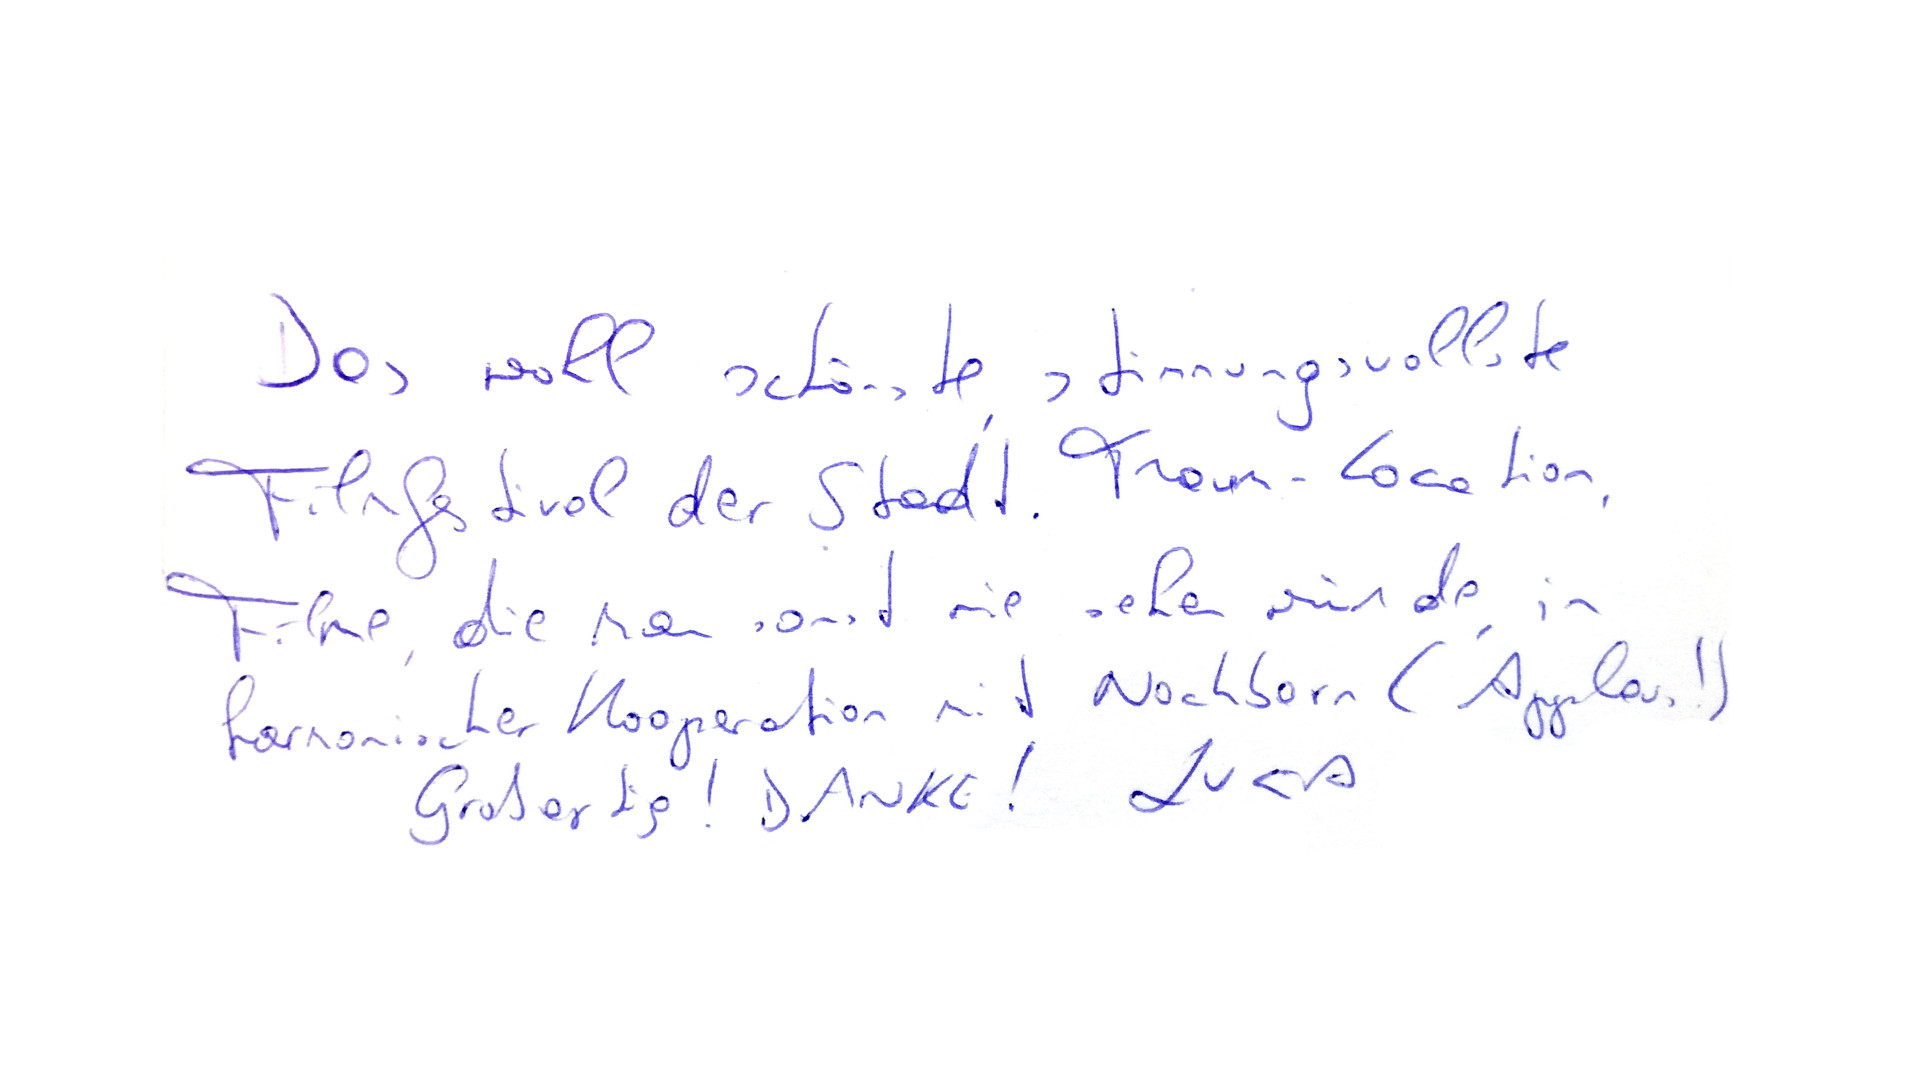 Das wohl schönste, stimmungsvollste
Filmfestival der Stadt. Traum-Location,
Filme, die man sonst nie sehen würde, in
harmonischer Kooperation mit Nachbarn (Applaus!)
Großartig! DANKE! LUCA